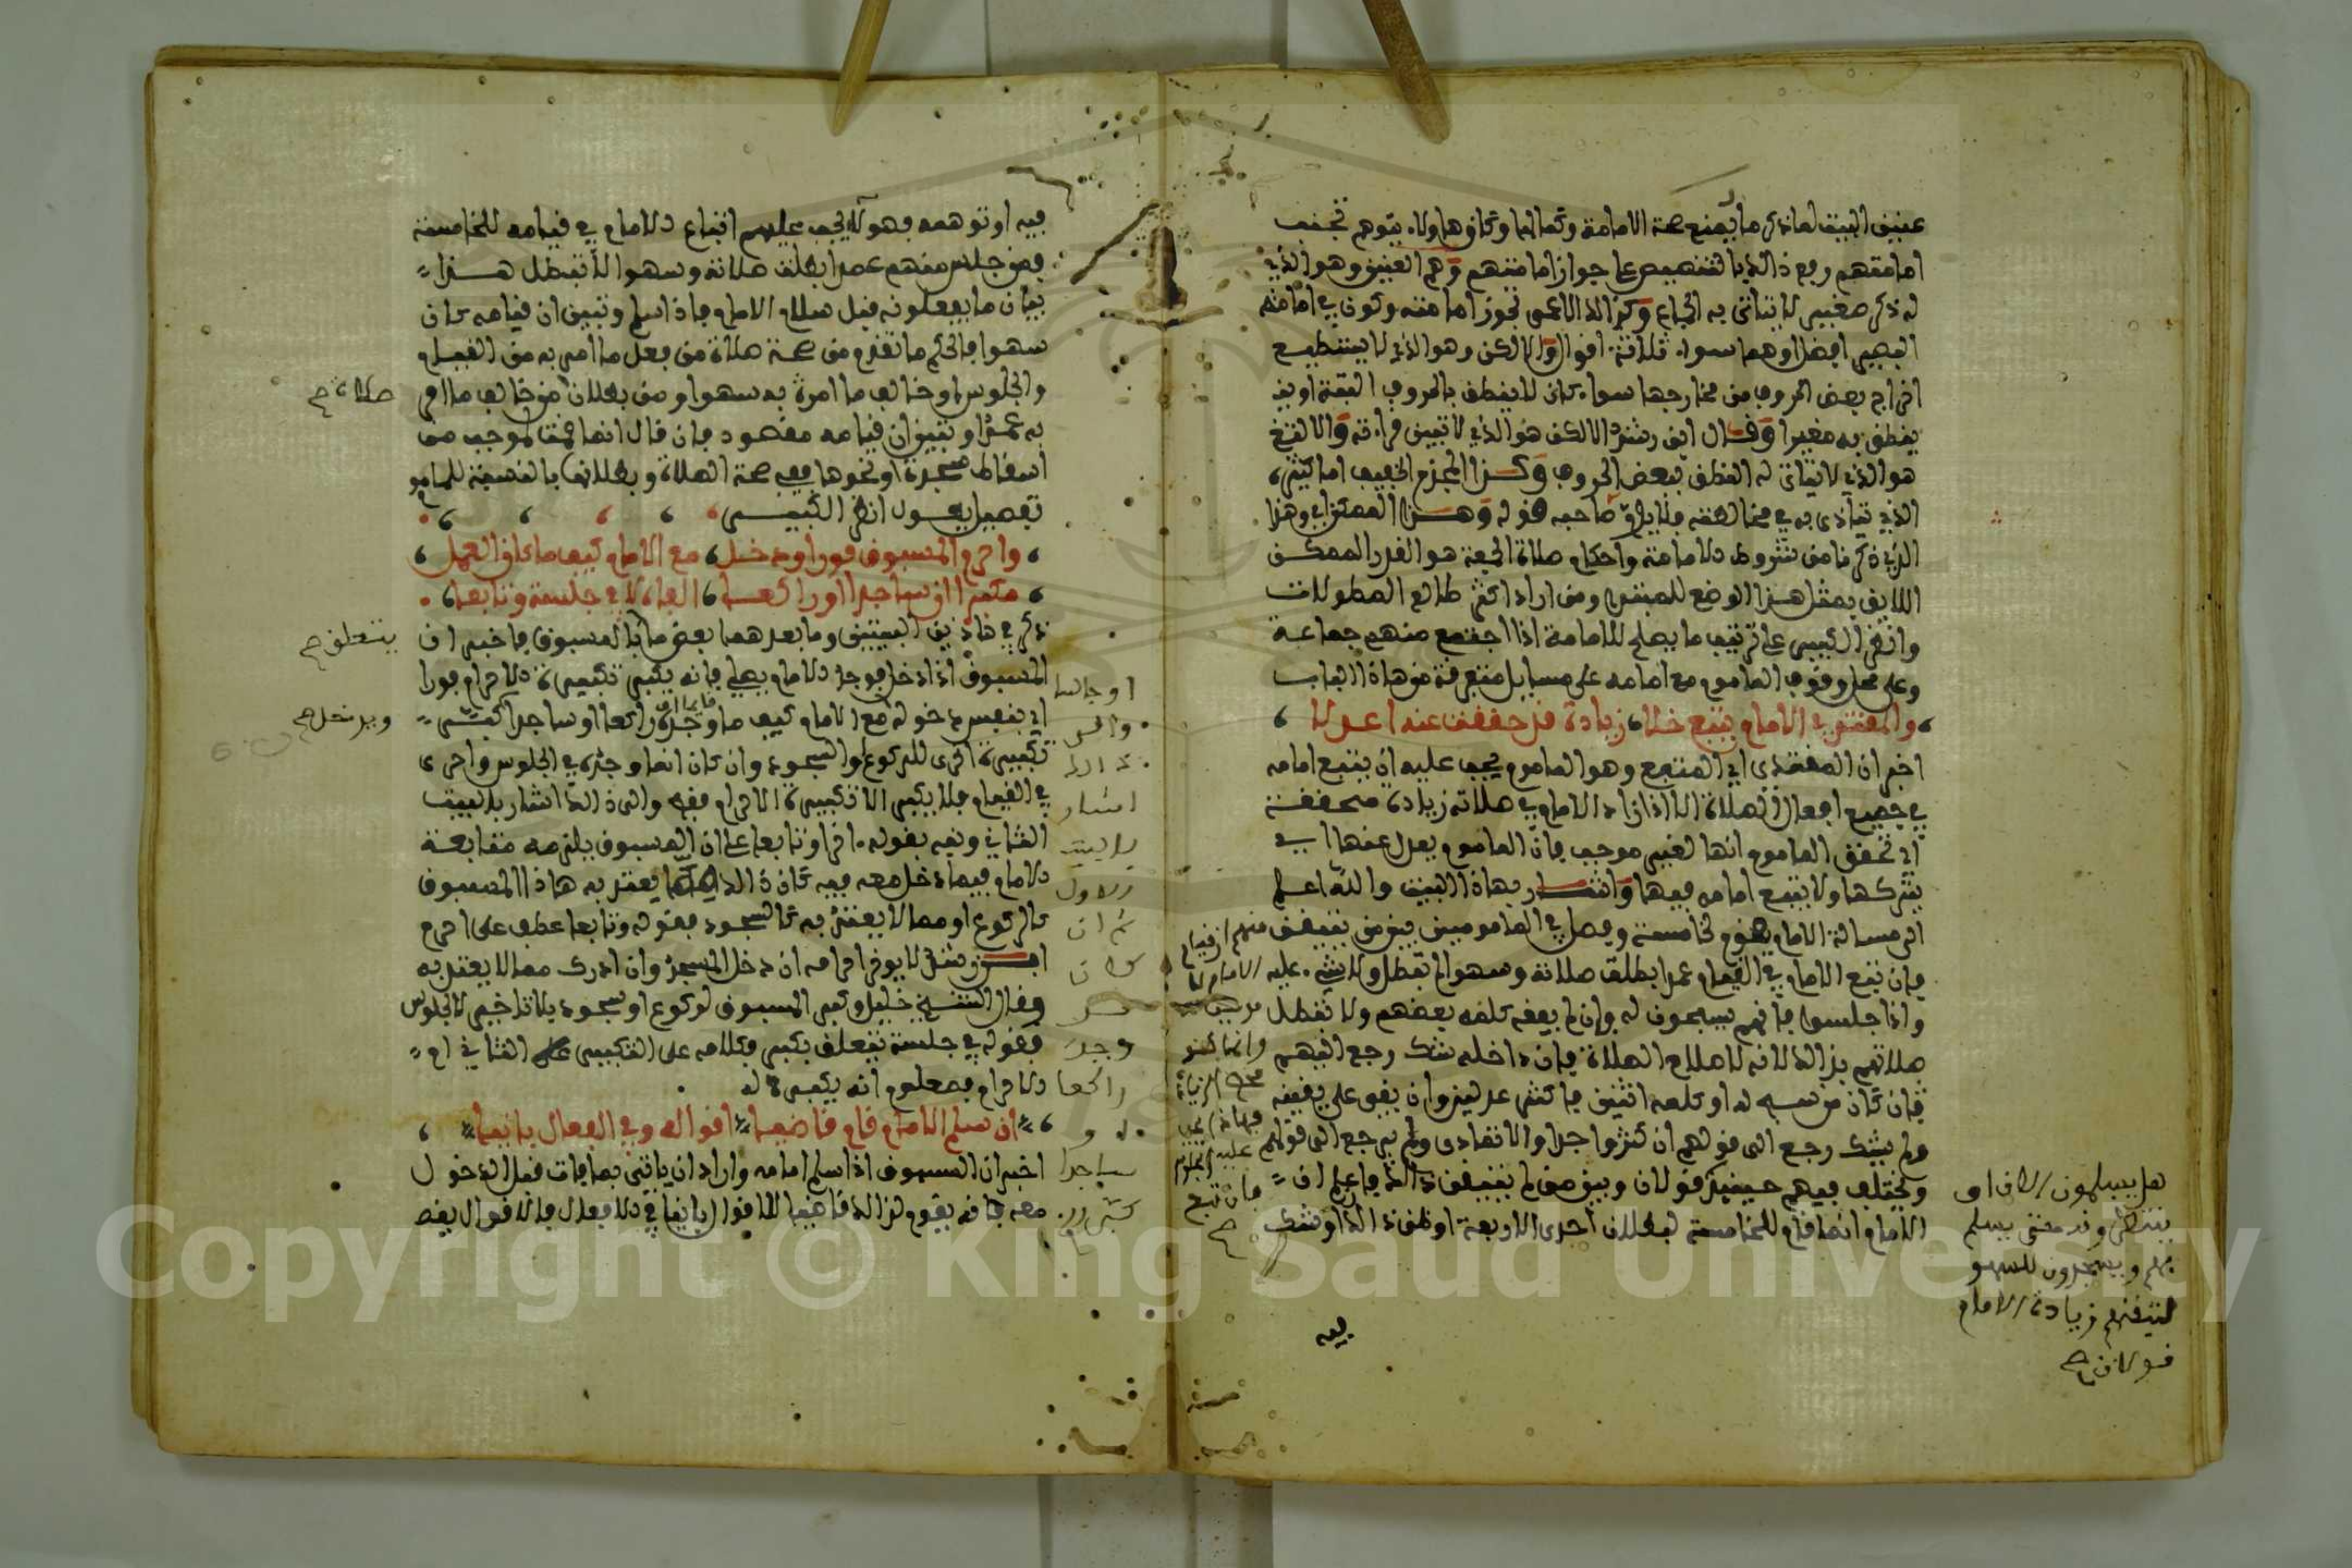 عنين البيت لما ذكر ما يمنع صحة الامامة وكمالها وكان هاولاء يتوهم تجنب
امامتهم رفع ذالك بالتنصيص على جواز امامتهم وهم العنين وهو الذي
له ذكر صغير لا يتاتى به الجماع وكذالك الاعمى تجوز امامته وكون في امامته
البصير افضل او هما سواء ثلاثة اقوال والالكن وهو الذي لا يستطيع
اخراج بعض الحروف من مخارجها سواء كان لا ينطق بالحروف البتة او ين
ينطق به مغيرا وقال ابن رشد الالكن هو الذي لا تبين قراءته والالثغ
هو الذي لا يتاتى له النطق ببعض الحروف وكذا المجذم الخفيف اما كثيره
الذي يتاذى به في مخالطته فلا صاحبه قوله وهذا الممكن اي وهذا
الذي ذكرنا من شروط الامامة واحكام صلاة الجمعة هو القدر الممكن
اللايق بمثل هذا الوضع للمبتدي ومن اراد اكثر طالع المطولات
وانظر الكبير على ترتيب ما يصلح للامامة اذا اجتمع منهم جماعة
وعلى محل وقوف الماموم مع امامه على مسايل متفرقة من هاذا الباب
والمقتدي الامام يتبع خلا زيادة قد حققت عنها اعدلا
اخبر ان المقتدي اي المتبع وهو الماموم يجب عليه ان يتبع امامه
في جميع افعال الصلاة الا اذا زاد الامام في صلاته زيادة محققة
اي تحقق الماموم انها لغير موجب فان الماموم يعدل عنها اي
يتركها ولا يتبع امامه فيها واشار بهاذا البيت والله اعلم
الى مسالة الامام يقوم لخامسة وفصل في المامومين بين من تيقن
فان تبع الامام في القيام عمدا بطلت صلاته وسهوا لم تبطل ولا شيء عليه
واذا جلسوا فانهم يسبحون له وان لم يفقه كلمه بعضهم ولا تبطل
صلاتهم بذالك لانه لاصلاح الصلاة فان داخله شك رجع اليهم
فان كان من سبح له او كلمه اثنين فاكثر عدلين وان بقي على يقينه
ولم يشك رجع الى قولهم ان كثروا جدا والا تمادى ولم يرجع الى قولهم
ويختلف فيهم حينئذ قولان وبين من لم يتيقن ذالك فاعلم ان
الامام انما قام للخامسة لبطلان احدى الاربعة او ظن ذالك او شك
منهم ان قيام
الامام لا
هل يسلمون الان او
ينتظرونه حتى يسلم
بهم ويسجدون للسهو
لتيقنهم زيادة الامام
قولان صح
فيه
فيه او توهمه فهو لا يجب عليهم اتباع الامام في قيامه للخامسة
فمن جلس منهم عمدا بطلت صلاته وسهوا لا تبطل هذا
بيان ما يفعلونه قبل سلام الامام فاذا سلم وتبين ان قيامه كان
سهوا فالحكم ما تقدم من صحة صلاة من فعل ما امر به من القيام
والجلوس او خالف ما امر به سهوا ومن بطلان من خالف ما امر
به عمدا وتبين ان قيامه مقصود فان قال انما قمت لموجب من
اسقاط سجدة او نحوها ففي صحة الصلاة وبطلانها بالنسبة للمامو
تفصيل يطول انظر الكبير
واحرم المسبوق فورا ودخل مع الامام كيف ما كان العمل
مكبرا ان ساجدا او راكعا الفاه لا في جلسة وتابعا
ذكر في هاذين البيتين وما بعدهما بعض ما بالمسبوق فاخبر ان
المسبوق اذا دخل فوجد الامام يصلي فانه يكبر تكبيرة الاحرام فورا
اي بنفس دخوله مع الامام كيف ما وجده راكعا او ساجدا كبر
تكبيرة اخرى للركوع او السجود وان كان انما وجده في الجلوس واحرى
في القيام فلا يكبر الا تكبيرة الاحرام فقط والى ذالك اشار بالبيت
الثاني ونبه بقوله اخرا وتابعا على ان المسبوق يلزمه متابعة
الامام فيما دخل معه فيه كان ذالك مما يعتد به هاذا المسبوق
كالركوع او مما لا يعتد به كالسجود فقوله وتابعا عطف على احرم
لا يوخر احرامه ان دخل المسجد وان ادرك مما لا يعتد به
وقال الشيخ خليل وكبر المسبوق لركوع او سجود بلا تاخير لا لجلوس
فقوله في جلسة يتعلق بكبر وكلامه على التكبير الثاني اي
الاحرام فمعلوم انه يكبر له
ان سلم الامام قام قاضيا اقواله وفي الفعال بانيا
اخبر ان المسبوق اذا سلم امامه واراد ان ياتي بما فات قبل الدخول
معه فانه يقوم لذالك قاضيا للاقوال بانيا في الافعال فالاقوال يقض
صلاته صح
يتعلق صح
ويدخل صح
او جالسا
اشار
الاول
ثم ان
كان
وجد
راكعا
او
ساجدا